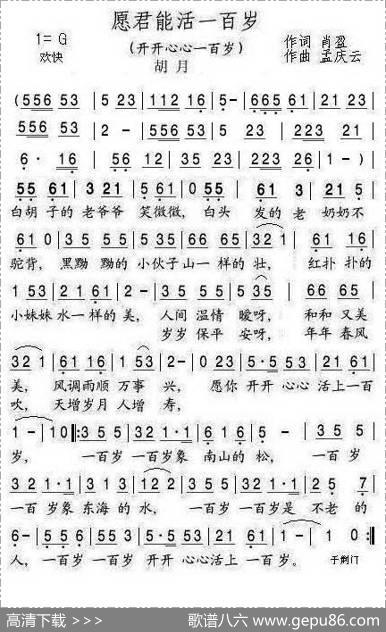 愿君能活一百岁
1=G
(开开心心一百岁)
作词 肖盈
欢快
胡月
作曲 孟庆云
(556 53 | 5 23 | 112 16 | 5- | 665 61 | 21 23 |
556 53 | 2 - | 556 53 | 5 23 | 223 21 |
6· 16 | 56 12 | 35 21 | 223 26 | 1 - ) |
55 61 | 3 21 | 5 61 | 0 55 | 61 3 | 21 5 |
白胡 子的 老爷爷 笑微微, 白头 发的 老 奶奶不
61 0 | 35 55 | 535 35 | 66 65 | 32 1 | 61 16 |
驼背, 黑黝 黝的 小伙子 山一样的 壮, 红扑 扑的
1 53 | 21 61 | 2- | 35 55 | 5 35 | 66 65 |
小妹妹 水一样的 美, 人间 温情 暖呀, 和和 又美
岁岁 保平 安呀, 年年 春风
32 1 | 61 16 | 1 53 | 2- | 0 23 | 5·5 53 | 21 61 |
美, 风调雨顺 万事 兴, 愿你 开开 心心 活上一百
吹, 天增岁月 人增 寿,
1 - | 10 :‖: 3 5 5 | 32 1·1 | 61 6 | 5 - | 3 5 5 |
岁, 一百岁 一百岁象 南山的 松, 一百 岁
32 1·1 | 31 3 | 12 2 | 3 5 5 | 32 1·1 | 25 7 |
一百 岁象 东海 的 水, 一百岁 一百岁是 不老 的
6- | 5 3 5 | 5·5 53 | 21 61 | 1- | 1- | 1 0 ‖
人, 一百岁 一百岁 开开 心心活上 一百岁。
高清下载 >>>
歌谱八六 www.gepu86.com